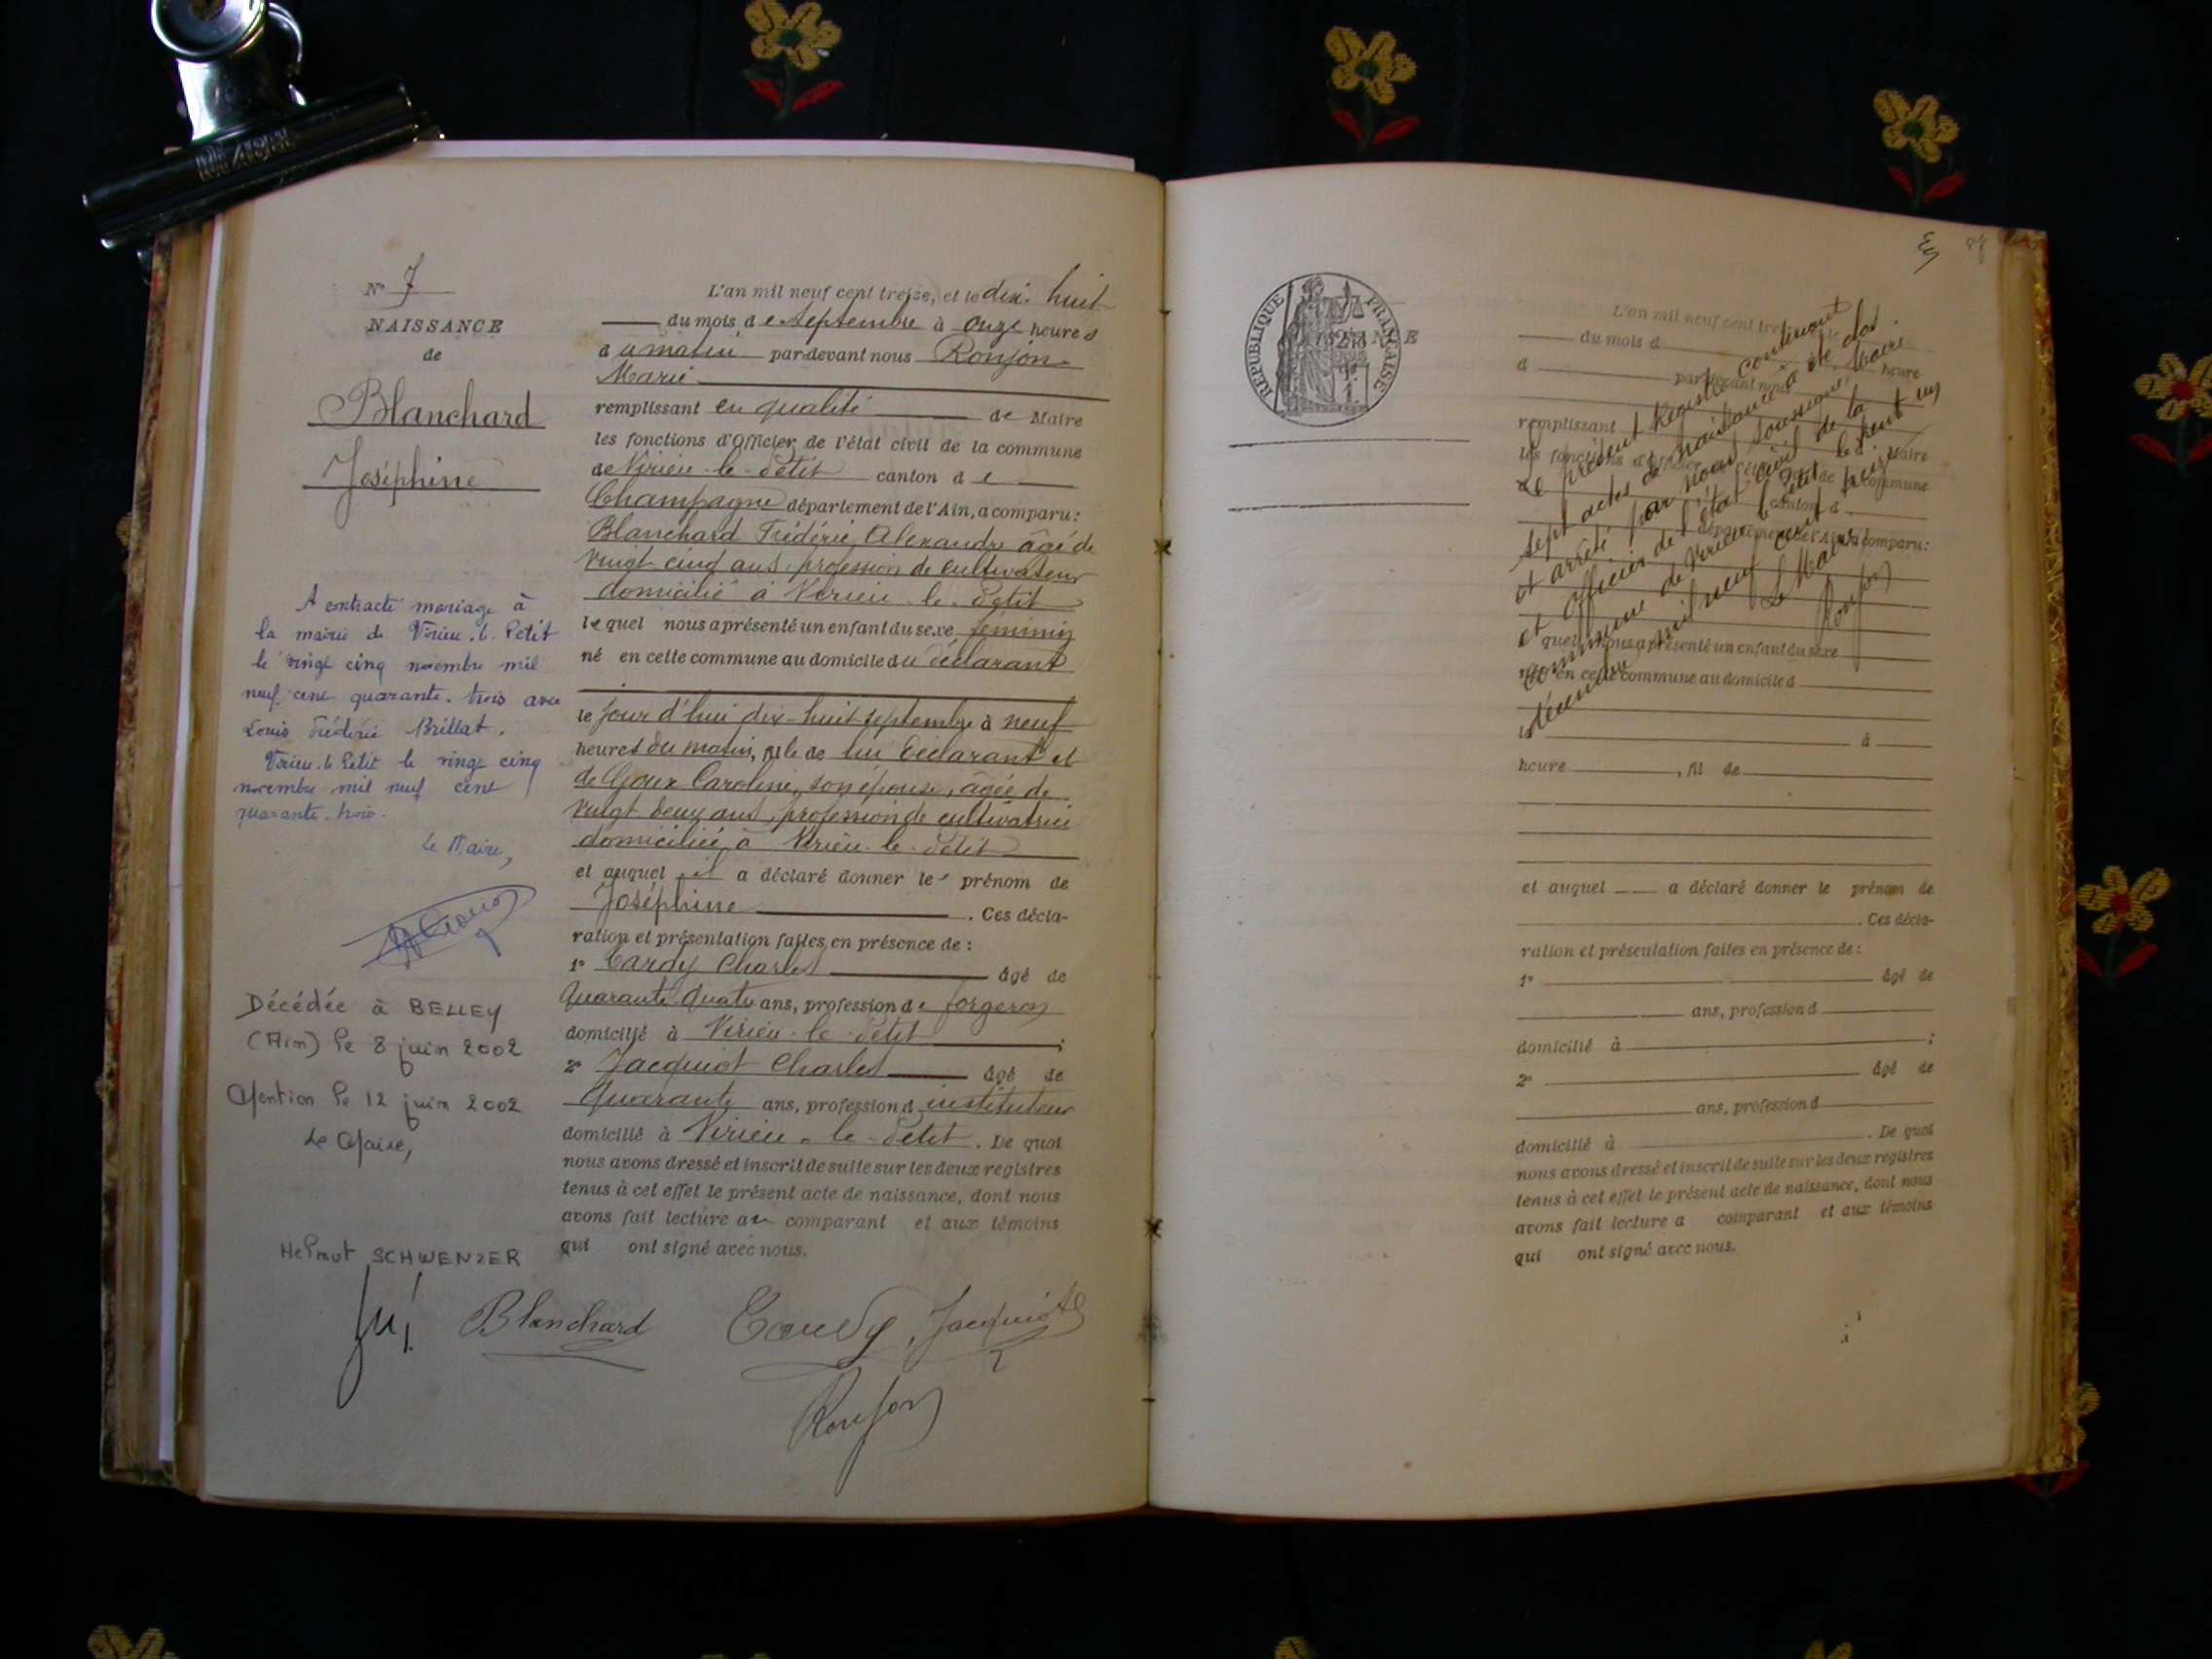 N° 7
NAISSANCE
de
Blanchard
Joséphine
A contracté mariage à
la mairie de Virieu-le-Petit
le vingt cinq novembre mil
neuf cent quarante-trois avec
Louis Frédéric Brillat.
Virieu-le-Petit le vingt cinq
novembre mil neuf cent
quarante-trois.
Le Maire,
Décédée à BELLEY
(Ain) le 8 juin 2002
Mention le 12 juin 2002
Le Maire,
Helmut SCHWENZER
L'an mil neuf cent treize, et le dix-huit
du mois de Septembre à onze heures
du matin par-devant nous Ronjon
Marie
remplissant en qualité de Maire
les fonctions d'Officier de l'état civil de la commune
de Virieu-le-Petit canton de
Champagne département de l'Ain, a comparu :
Blanchard Frédéric Alexandre âgé de
vingt cinq ans, profession de cultivateur
domicilié à Virieu-le-Petit
lequel nous a présenté un enfant du sexe féminin
né en cette commune au domicile du déclarant
le jour d'hui dix-huit septembre à neuf
heures du matin, fille de lui déclarant et
de Caroline, son épouse, âgée de
vingt deux ans, profession de cultivatrice
domiciliée à Virieu-le-Petit
et auquel il a déclaré donner le prénom de
Joséphine . Ces décla-
ration et présentation faites en présence de :
1° Cardy Charles âgé de
quarante quatre ans, profession de forgeron
domicilié à Virieu-le-Petit ;
2° Jacquiot Charles âgé de
quarante ans, profession d instituteur
domicilié à Virieu-le-Petit . De quoi
nous avons dressé et inscrit de suite sur les deux registres
tenus à cet effet le présent acte de naissance, dont nous
avons fait lecture au comparant et aux témoins
qui ont signé avec nous.
Blanchard Cardy Jacquiot
Ronjon
REPUBLIQUE FRANÇAISE
L'an mil neuf cent treize
du mois d
heure
d par-devant nous
remplissant Maire
les fonctions d'Officier de l'état civil de la commune
canton d
département de l'Ain, a comparu :
quel nous a présenté un enfant du sexe
né en cette commune au domicile d
le à
heure , fil de
et auquel a déclaré donner le prénom de
. Ces décla-
ration et présentation faites en présence de :
1° âgé de
ans, profession d
domicilié à ;
2° âgé de
ans, profession d
domicilié à . De quoi
nous avons dressé et inscrit de suite sur les deux registres
tenus à cet effet le présent acte de naissance, dont nous
avons fait lecture a comparant et aux témoins
qui ont signé avec nous.
Le présent Registre contenant
sept actes de naissances a été clos
et arrêté par nous soussigné, Maire
et Officier de l'état civil de la
commune de Virieu-le-Petit le trente un
décembre mil neuf cent treize
Le Maire
Ronjon